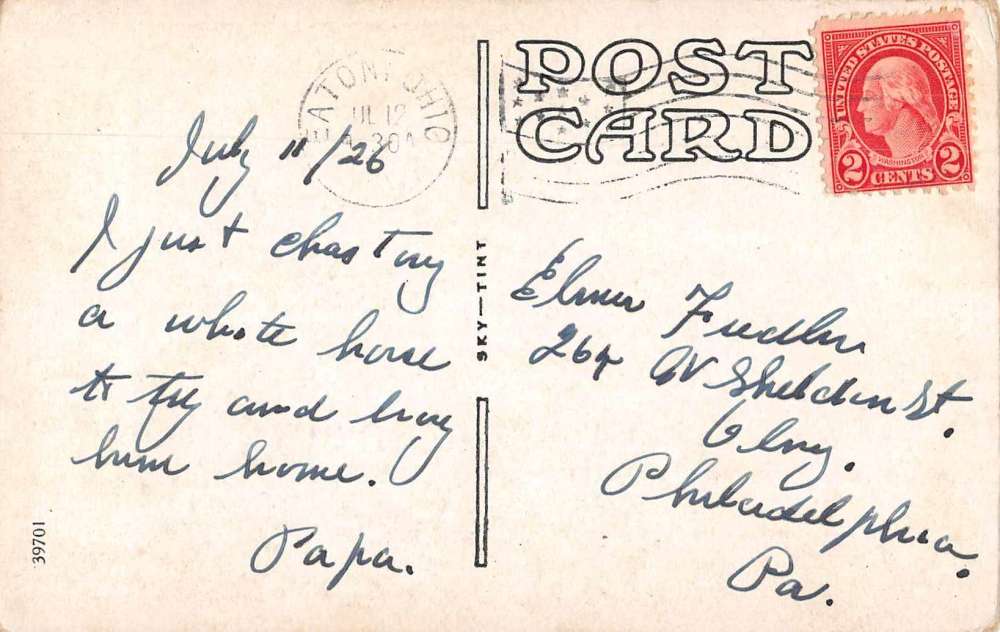 POST
CARD
UNITED STATES POSTAGE
WASHINGTON
2 CENTS 2
EATON, OHIO
JUL 12
30A
July 11/26
I just chas Tony
a white horse
to try and bring
him home.
Papa.
SKY—TINT
39701
Elmer Fiedler
264 W Sheldon St.
Olny.
Philadelphia.
Pa.